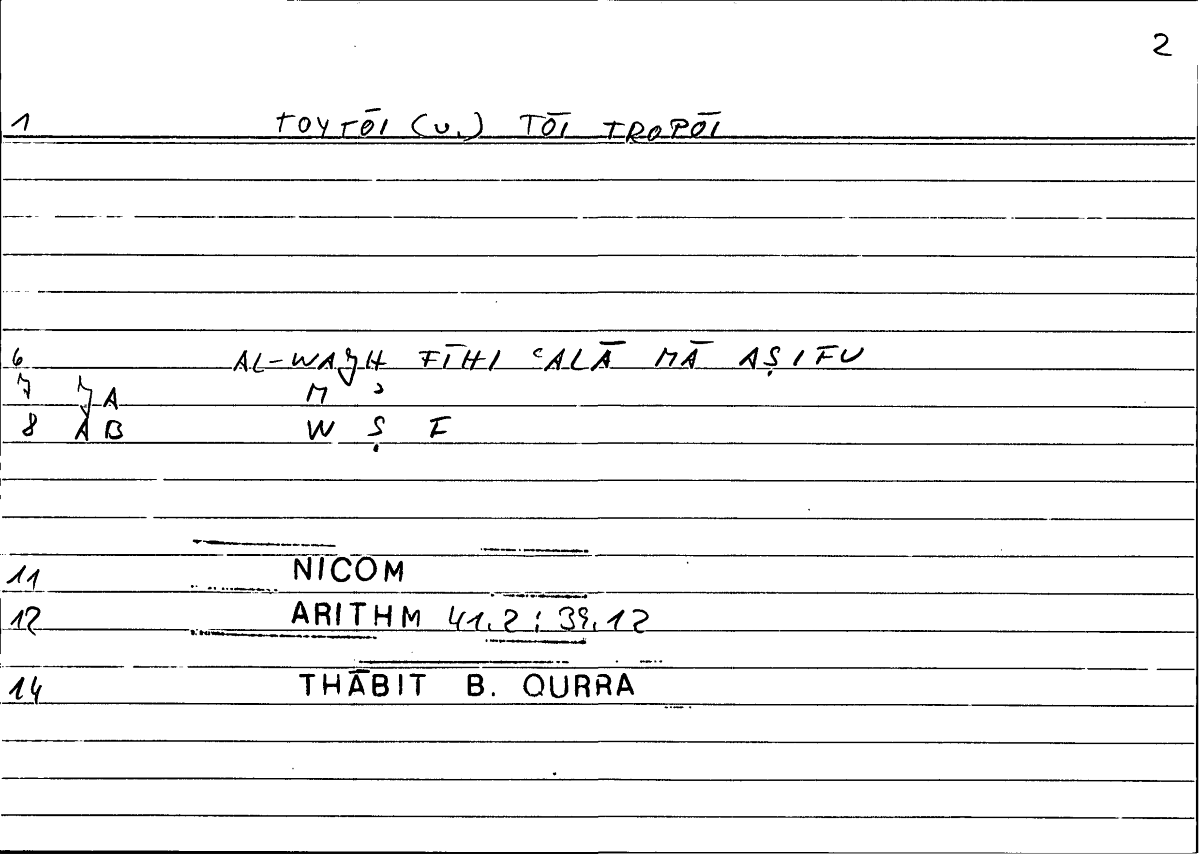 2
1 TOYTŌI (U.) TŌI TROPŌI
6 AL-WAJH FĪHI ʿALĀ MĀ AṢIFU
7 JA M ʾ
8 AB W Ṣ F
11 NICOM
12 ARITHM 41.2 ; 39.12
14 THĀBIT B. QURRA